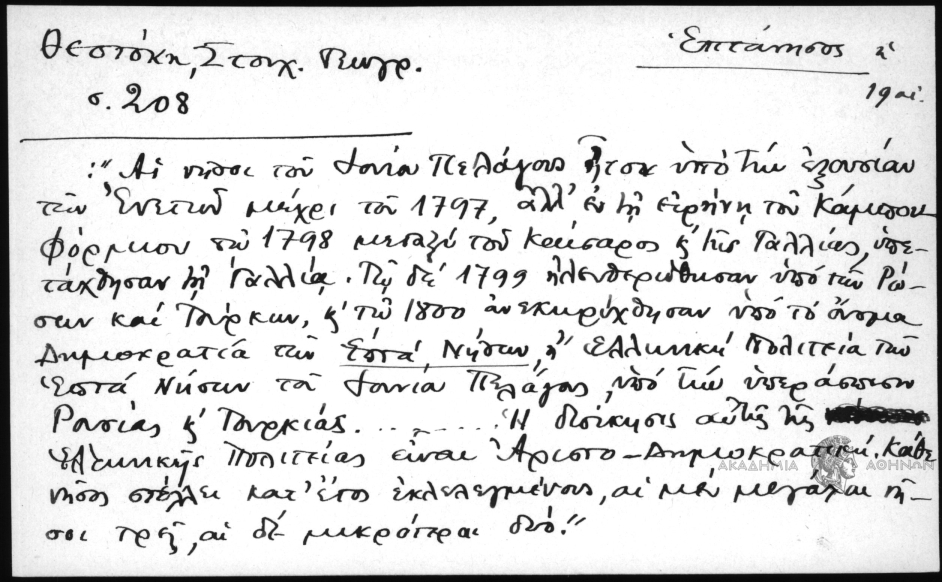 Θεοτόκη, Στοιχ. Γεωγρ.
σ. 208
Ἑπτάνησος κ'
19 αἰ.
:" Αἱ νῆσοι τοῦ Ἰονία Πελάγους ἦσαν ὑπὸ τὴν ἐξουσίαν
τῶν Ἐνετῶν μέχρι τοῦ 1797, ἀλλ' ἐν τῇ εἰρήνῃ τοῦ Κάμπου
Φόρμιου τῷ 1798 μεταξὺ τοῦ Καίσαρος κ' τῆς Γαλλίας, ὑπε-
τάχθησαν τῇ Γαλλίᾳ. Τῷ δέ 1799 ἠλευθερώθησαν ὑπὸ τῶν Ρώ-
σων καὶ Τούρκων, κ' τῷ 1800 ἀνεκηρύχθησαν ὑπὸ τὸ ὄνομα
Δημοκρατία τῶν Ἑπτά Νήσων, ἢ Ἑλληνική Πολιτεία τῶν
Ἑπτά Νήσων τοῦ Ἰονία Πελάγους, ὑπὸ τὴν ὑπεράσπισιν
Ρωσίας κ' Τουρκίας. ........ Ἡ διοίκησις αὐτῆς τῆς
Ἑλληνικῆς Πολιτείας εἶναι Ἀριστο-Δημοκρατική. Κάθε
νῆσος στέλλει κατ' ἔτος ἐκλελεγμένους, αἱ μὲν μεγάλαι νῆ-
σοι τρεῖς, αἱ δὲ μικρότεραι δύο."
ΑΚΑΔΗΜΙΑ ΑΘΗΝΩΝ